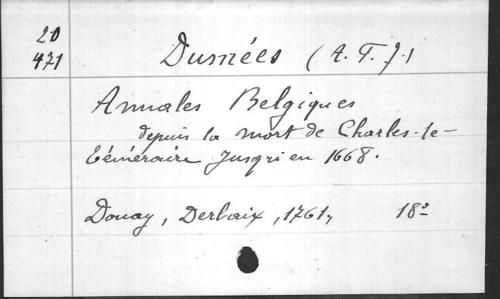 20
471
Dumées (A. F. J.)
Annales Belgiques
depuis la mort de Charles-le-
Téméraire jusqu'en 1668.
Douay, Derbaix, 1761,
18°